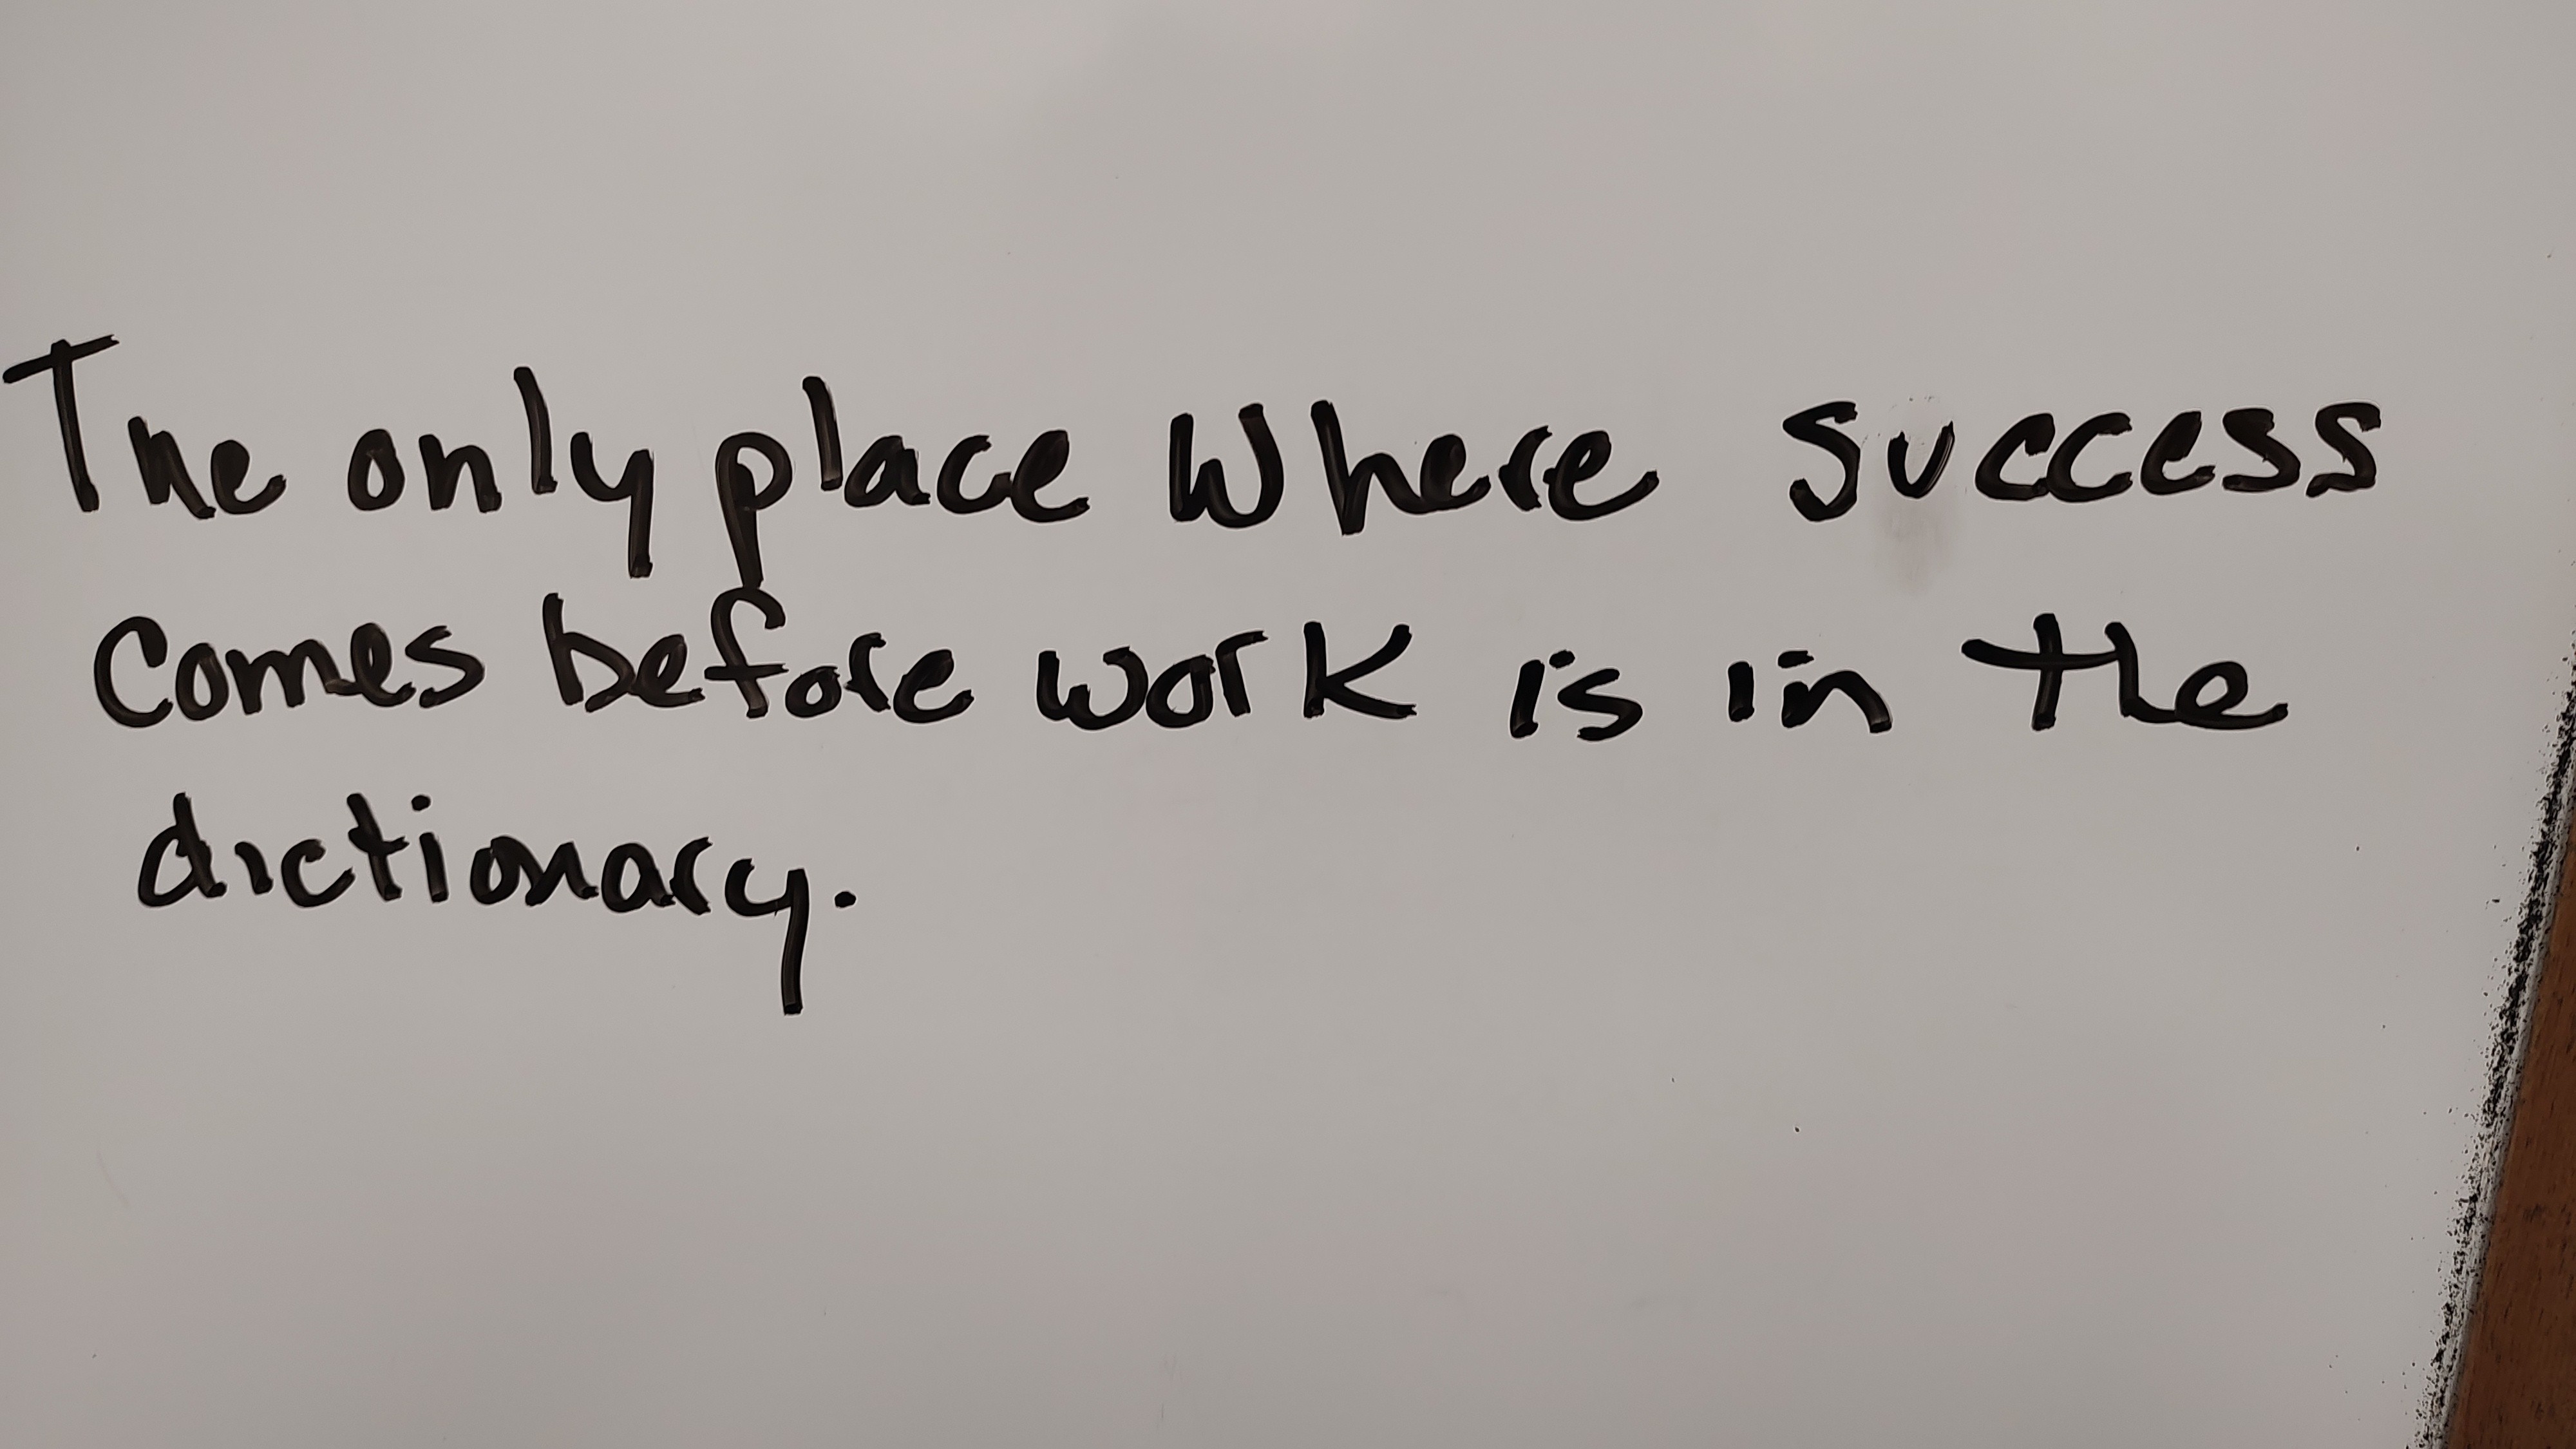 The only place where success
comes before work is in the
dictionary.